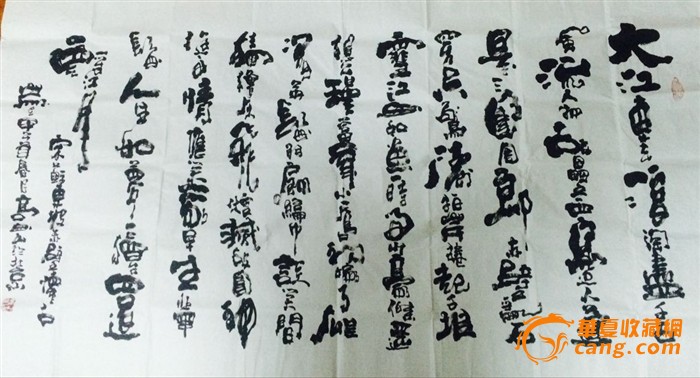 大江東去浪淘盡千古
風流人物故壘西邊人道
是三國周郎赤壁亂石
穿空驚濤拍岸捲起千堆
雪江山如畫一時多少豪傑遙
想公瑾當年小喬初嫁了雄
姿英發羽扇綸巾談笑間
檣櫓灰飛煙滅故國神
遊多情應笑我早生華
髮人生如夢一尊還酹
江月
宋蘇東坡赤壁懷古
華夏收藏網
cang.com